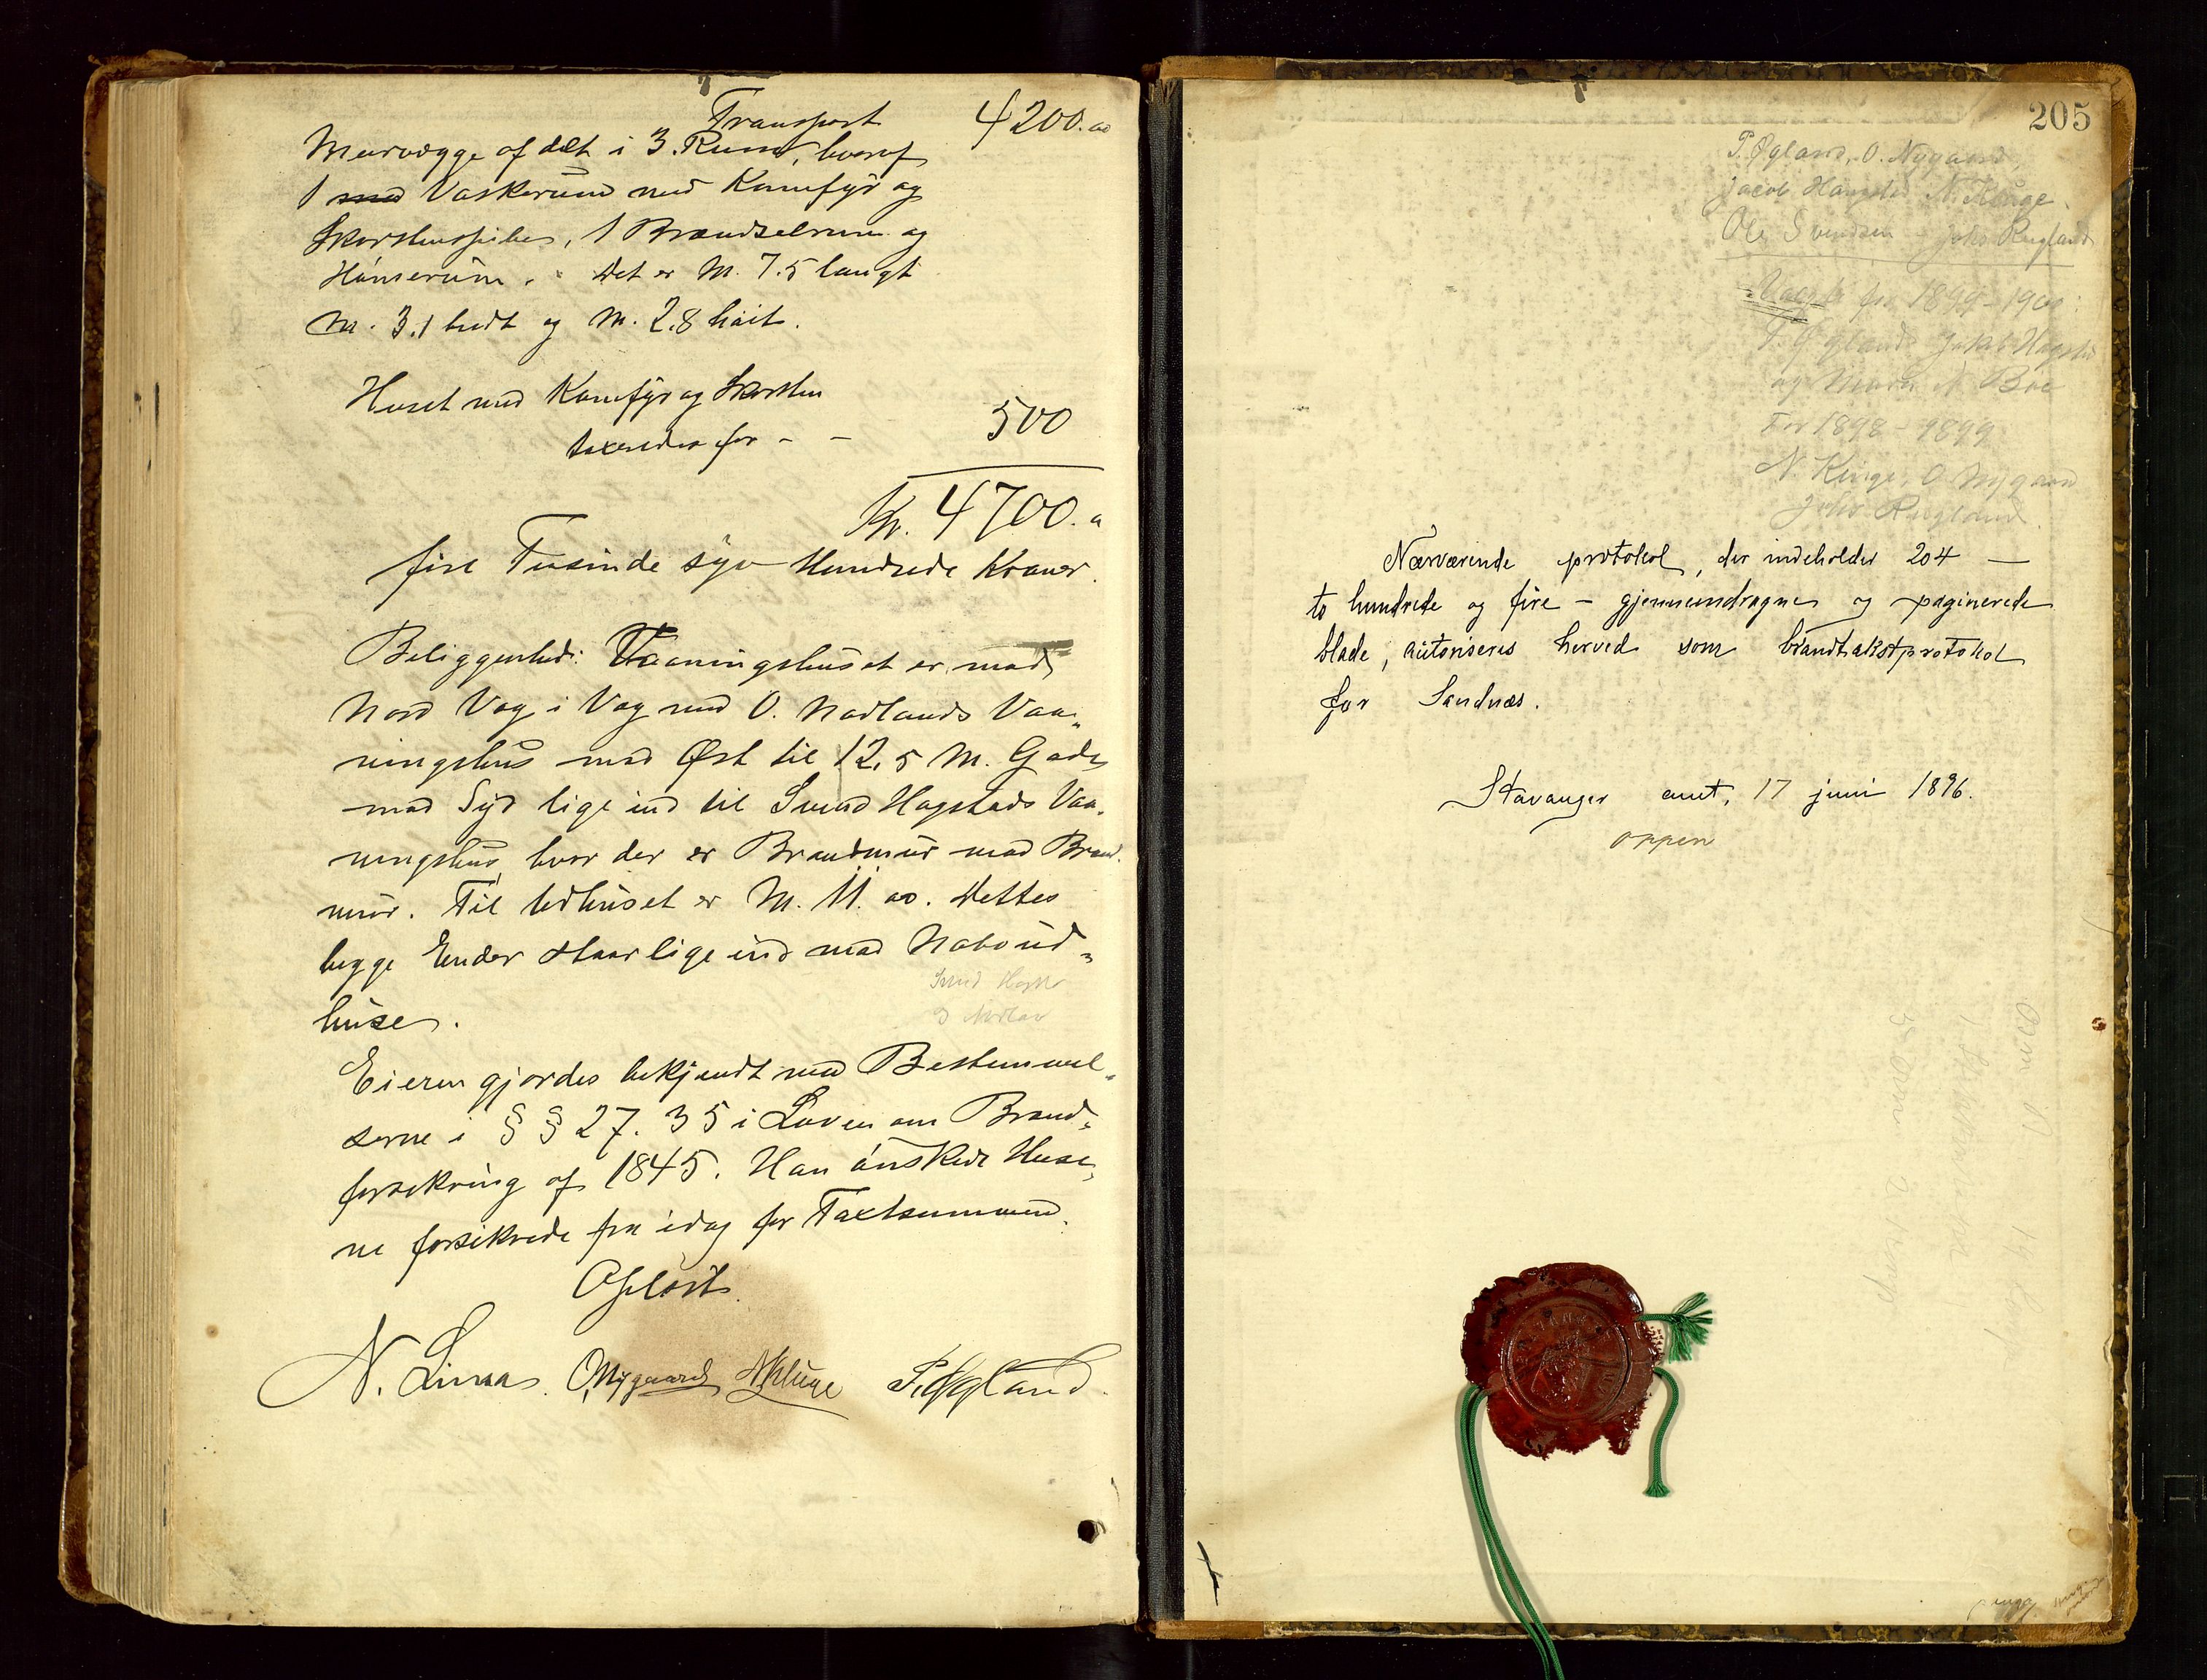 Transport 4200.00
Murvægge afdelt i 3. Rum, hvoraf
1 med Vaskerum med Komfyr og
Skorstenspibe, 1 Brændselrum og
Hønserum. Det er M. 7.5 langt
M. 3.1 bredt og M. 2.8 høit.
Huset med Komfyr og Skorsten
taxeredes for - - 500
Kr. 4700.
fire Tusinde syv Hundrede Kroner.
Beliggenhed: Vaaningshuset er mod
Nord Væg i Væg med O. Nadlands Vaa-
ningshus mod Øst til 12,5 M. Gade
mod Syd lige ind til Svend Hagstads Vaa-
ningshus, hvor der er Brandmur mod Brand-
mur. Til Udhuset er M. 11.00. Dettes
begge Ender staar lige ind mod Naboud-
huse.
Eieren gjordes bekjendt med Bestemmel-
serne i §§ 27. 35 i Loven om Brand-
forsikring af 1845. Han ønskede Huse-
ne forsikrede fra idag for Taxtsummen.
Oplæst
N. Limaas. O. Nygaard N Kluge P. Øgland.
205
P. Øgland, O. Nygaard,
Jacob Hagstad N. Kluge.
Ole Svendsen Johs Rugland
Valgte for 1899-1900:
T. Øgland Jakob Hagstad
og N. Boe
For 1898-1899
N. Kluge, O Nygaard
Johs Rugland.
Nærværende protokol, der indeholder 204 —
to hundrede og fire – gjennemdragne og paginerede
blade, autoriseres herved som brandtakstprotokol
for Sandnæs.
Stavanger amt, 17 juni 1896.
Oppen